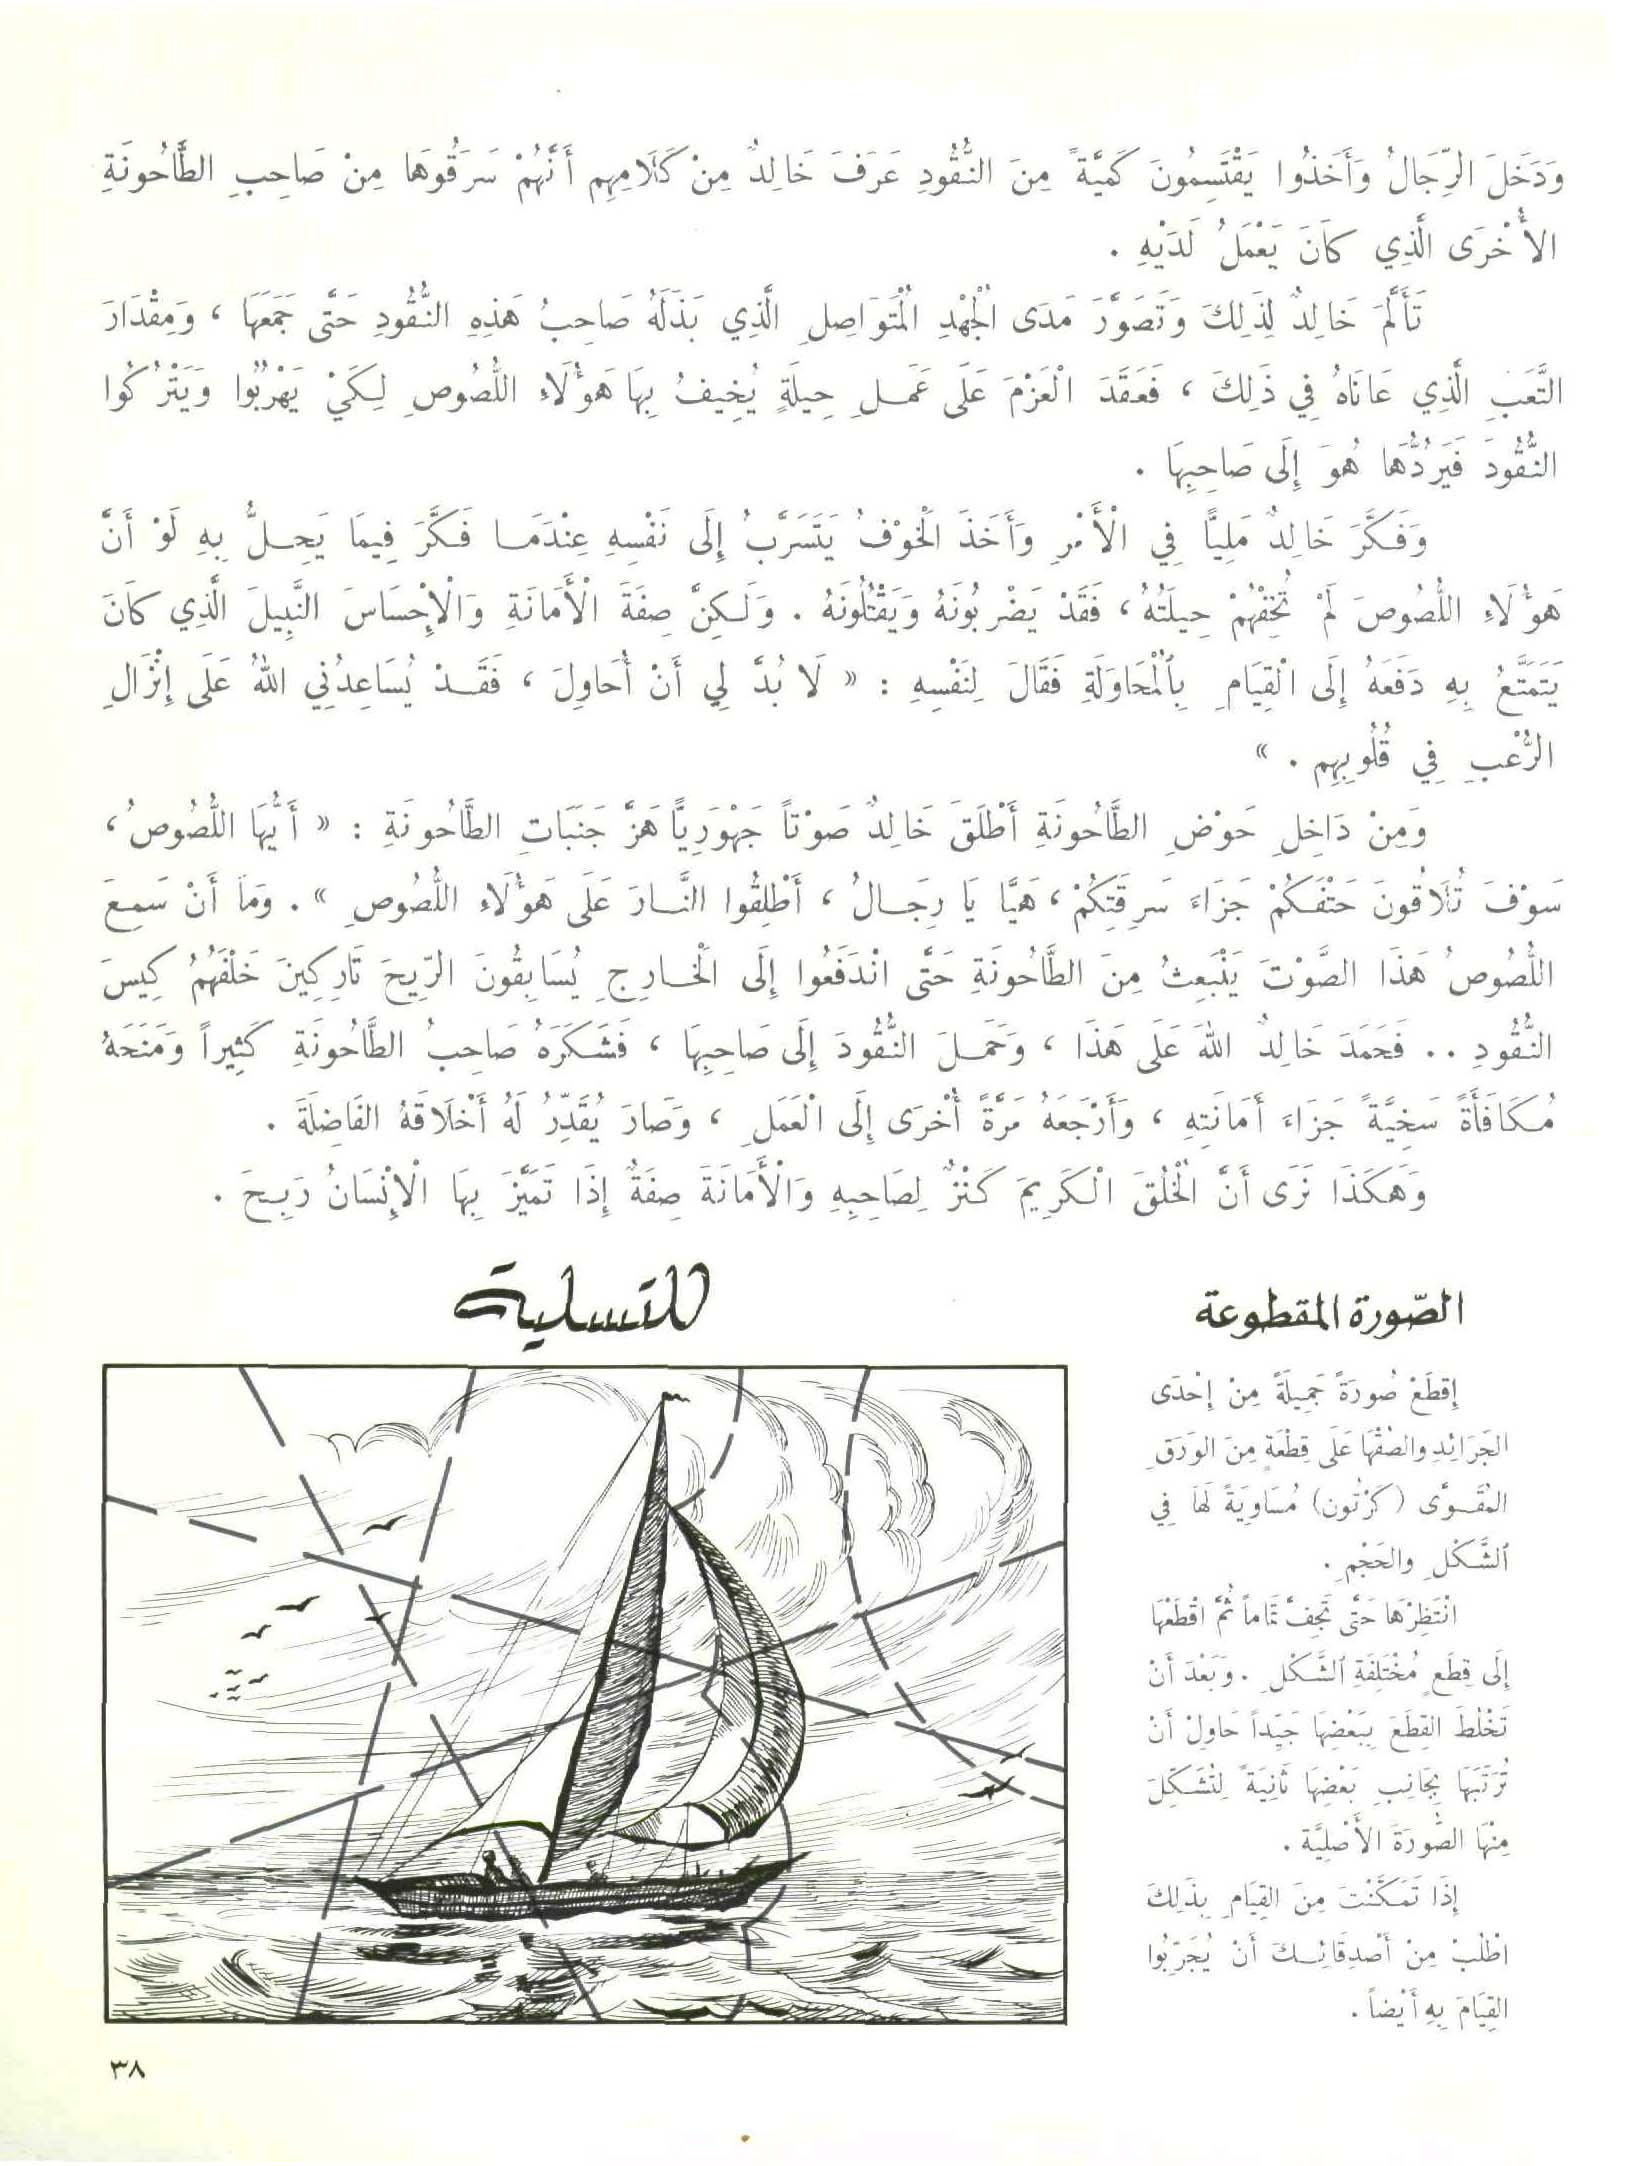 وَدَخَلَ الرِّجَالُ وَأَخَذُوا يَقْتَسِمُونَ كَمِيَّةً مِنَ النُّقُودِ عَرَفَ خَالِدٌ مِنْ كَلَامِهِم أَنَّهُمْ سَرَقُوهَا مِنْ صَاحِبِ الطَّاحُونَةِ
الأُخْرَى الَّذِي كَانَ يَعْمَلُ لَدَيْهِ .
تَأَلَّمَ خَالِدٌ لِذَلِكَ وَتَصَوَّرَ مَدَى الْجُهْدِ الْمُتَوَاصِلِ الَّذِي بَذَلَهُ صَاحِبُ هَذِهِ النُّقُودِ حَتَّى جَمَعَهَا ، وَمِقْدَارَ
التَّعَبِ الَّذِي عَانَاهُ فِي ذَلِكَ ، فَعَقَدَ الْعَزْمَ عَلَى عَمَلِ حِيلَةٍ يُخِيفُ بِهَا هَؤُلَاءِ اللُّصُوصِ لِكَيْ يَهْرُبُوا وَيَتْرُكُوا
النُّقُودَ فَيَرُدُّهَا هُوَ إِلَى صَاحِبِهَا .
وَفَكَّرَ خَالِدٌ مَلِيًّا فِي الْأَمْرِ وَأَخَذَ الْخَوْفُ يَتَسَرَّبُ إِلَى نَفْسِهِ عِنْدَمَا فَكَّرَ فِيمَا يَحِلُّ بِهِ لَوْ أَنَّ
هَؤُلَاءِ اللُّصُوصَ لَمْ تُخِفْهُمْ حِيلَتُهُ ، فَقَدْ يَضْرِبُونَهُ وَيَقْتُلُونَهُ . وَلَكِنَّ صِفَةَ الْأَمَانَةِ وَالْإِحْسَاسَ النَّبِيلَ الَّذِي كَانَ
يَتَمَتَّعُ بِهِ دَفَعَهُ إِلَى الْقِيَامِ بِٱلْمُحَاوَلَةِ فَقَالَ لِنَفْسِهِ : « لَا بُدَّ لِي أَنْ أُحَاوِلَ ، فَقَدْ يُسَاعِدُنِي اللهُ عَلَى إِنْزَالِ
الرُّعْبِ فِي قُلُوبِهِم . »
وَمِنْ دَاخِلِ حَوْضِ الطَّاحُونَةِ أَطْلَقَ خَالِدٌ صَوْتاً جَهْوَرِيًّا هَزَّ جَنَبَاتِ الطَّاحُونَةِ : « أَيُّهَا اللُّصُوصُ ،
سَوْفَ تُلَاقُونَ حَتْفَكُمْ جَزَاءَ سَرِقَتِكُمْ ، هَيَّا يَا رِجَالُ ، أَطْلِقُوا النَّارَ عَلَى هَؤُلَاءِ اللُّصُوصِ » . وَمَا أَنْ سَمِعَ
اللُّصُوصُ هَذَا الصَّوْتَ يَنْبَعِثُ مِنَ الطَّاحُونَةِ حَتَّى انْدَفَعُوا إِلَى الْخَارِجِ يُسَابِقُونَ الرِّيحَ تَارِكِينَ خَلْفَهُمُ كِيسَ
النُّقُودِ .. فَحَمَدَ خَالِدٌ اللهَ عَلَى هَذَا ، وَحَمَلَ النُّقُودَ إِلَى صَاحِبِهَا ، فَشَكَرَهُ صَاحِبُ الطَّاحُونَةِ كَثِيراً وَمَنَحَهُ
مُكَافَأَةً سَخِيَّةً جَزَاءَ أَمَانَتِهِ ، وَأَرْجَعَهُ مَرَّةً أُخْرَى إِلَى الْعَمَلِ ، وَصَارَ يُقَدِّرُ لَهُ أَخْلَاقَهُ الفَاضِلَةَ .
وَهَكَذَا نَرَى أَنَّ الْخُلُقَ الْكَرِيمَ كَنْزٌ لِصَاحِبِهِ وَالْأَمَانَةَ صِفَةٌ إِذَا تَمَيَّزَ بِهَا الْإِنْسَانُ رَبِحَ .
للتسلية
الصّورة المقطوعة
إِقطَعْ صُورَةً جَمِيلَةً مِنْ إِحْدَى
الجَرَائِدِ والصُقْهَا عَلَى قِطْعَةٍ مِنَ الوَرَقِ
المُقَوَّى (كَرْتُون) مُسَاوِيَةً لَهَا فِي
ٱلشَّكْلِ والحَجْمِ .
انْتَظِرْهَا حَتَّى تَجِفَّ تَمَاماً ثُمَّ اقْطَعْهَا
إِلَى قِطَعٍ مُخْتَلِفَةِ ٱلشَّكْلِ . وَبَعْدَ أَنْ
تَخْلُطَ القِطَعَ بِبَعْضِهَا جَيِّداً حَاوِلْ أَنْ
تُرَتِّبَهَا بِجَانِبِ بَعْضِهَا ثَانِيَةً لِتُشَكِّلَ
مِنْهَا الصُّورَةَ الأَصْلِيَّة .
إِذَا تَمَكَّنْتَ مِنَ القِيَامِ بِذَلِكَ
اطْلُبْ مِنْ أَصْدِقَائِكَ أَنْ يُجَرِّبُوا
القِيَامَ بِهِ أَيْضاً .
٣٨